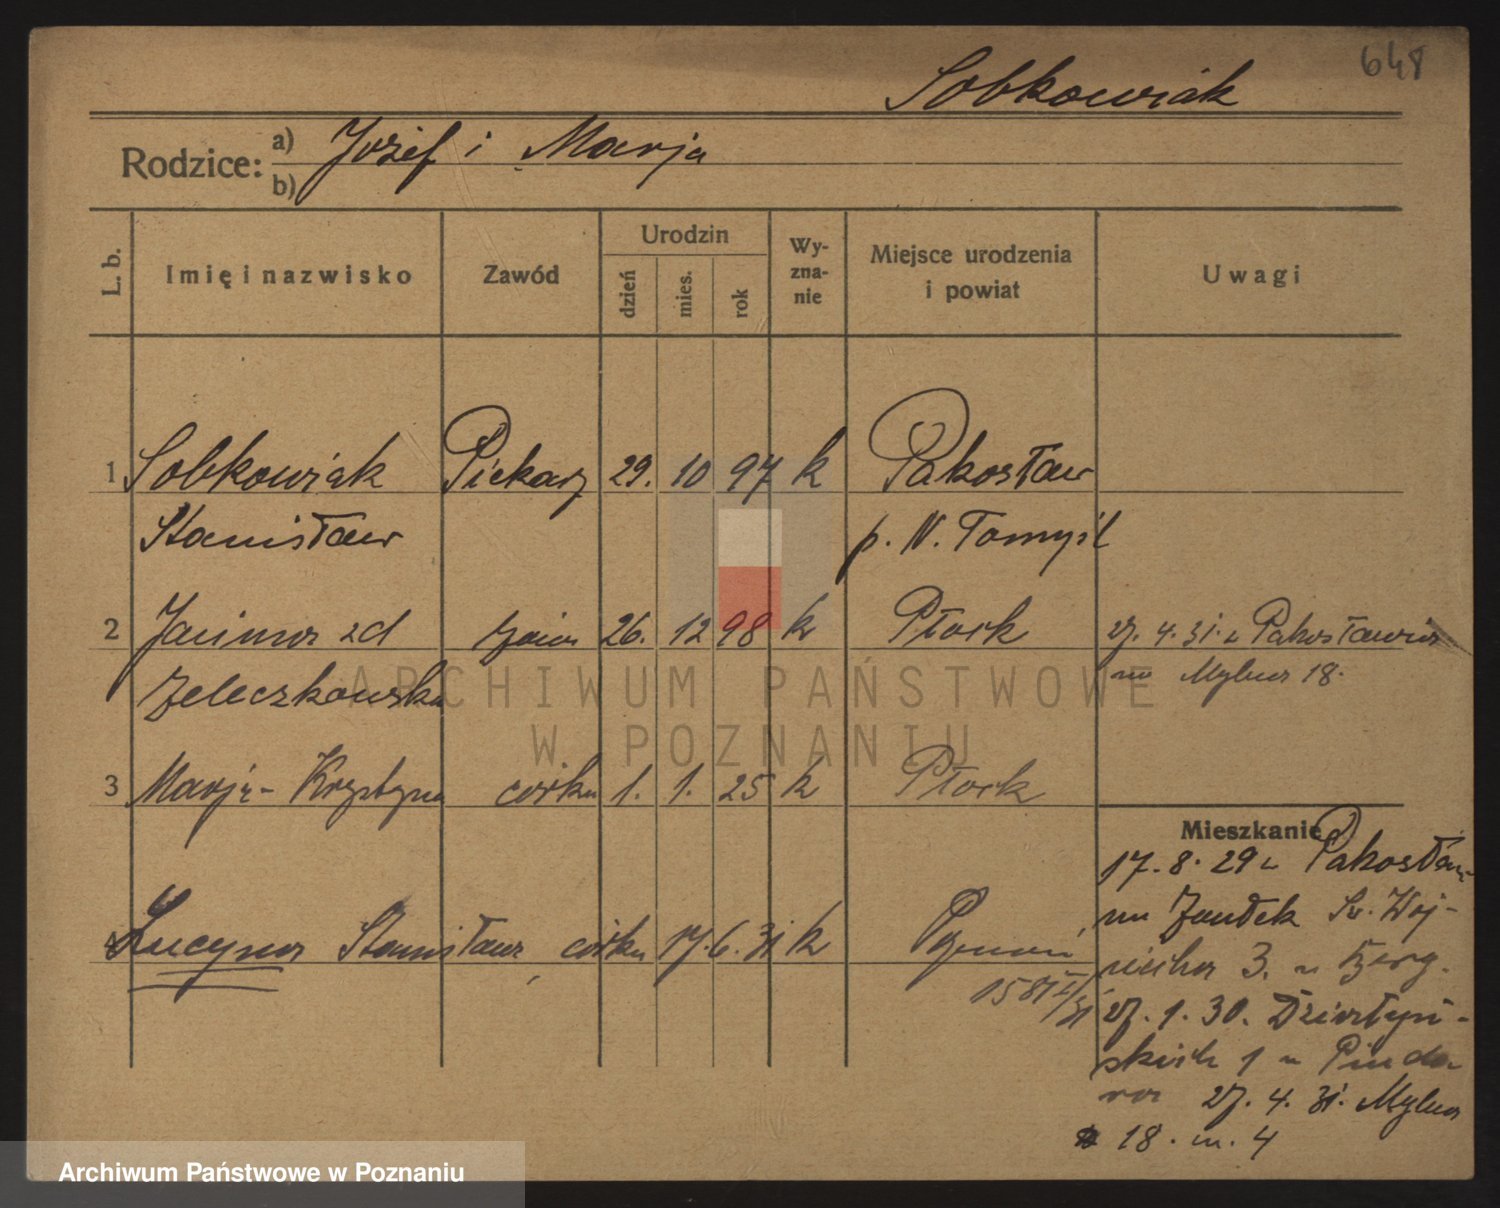 648
Sobkowiak
Rodzice: a) Józef i Marja
b)
L. b. Imię i nazwisko Zawód Urodzin dzień mies. rok Wy-zna-nie Miejsce urodzenia i powiat Uwagi
1 Sobkowiak Piekarz 29. 10 97 k Pakosław
Stanisław p. N. Tomyśl
2 Janina zd żona 26. 12 98 k Płock 27. 4. 31. z Pakosławia
Zeleczkowska na Mylna 18.
3 Marja-Krystyna córka 1. 1. 25 k Płock
Mieszkanie
17. 8. 29 z Pakosław
4 Lucyna Stanisława córka 17. 6. 31 k Poznań
na Zaułek Św. Woj-
ciecha 3. u
27. 1. 30. Działyń-
skich 1 u
27. 4. 31. Mylna
18. m. 4
ARCHIWUM PAŃSTWOWE
W POZNANIU
Archiwum Państwowe w Poznaniu